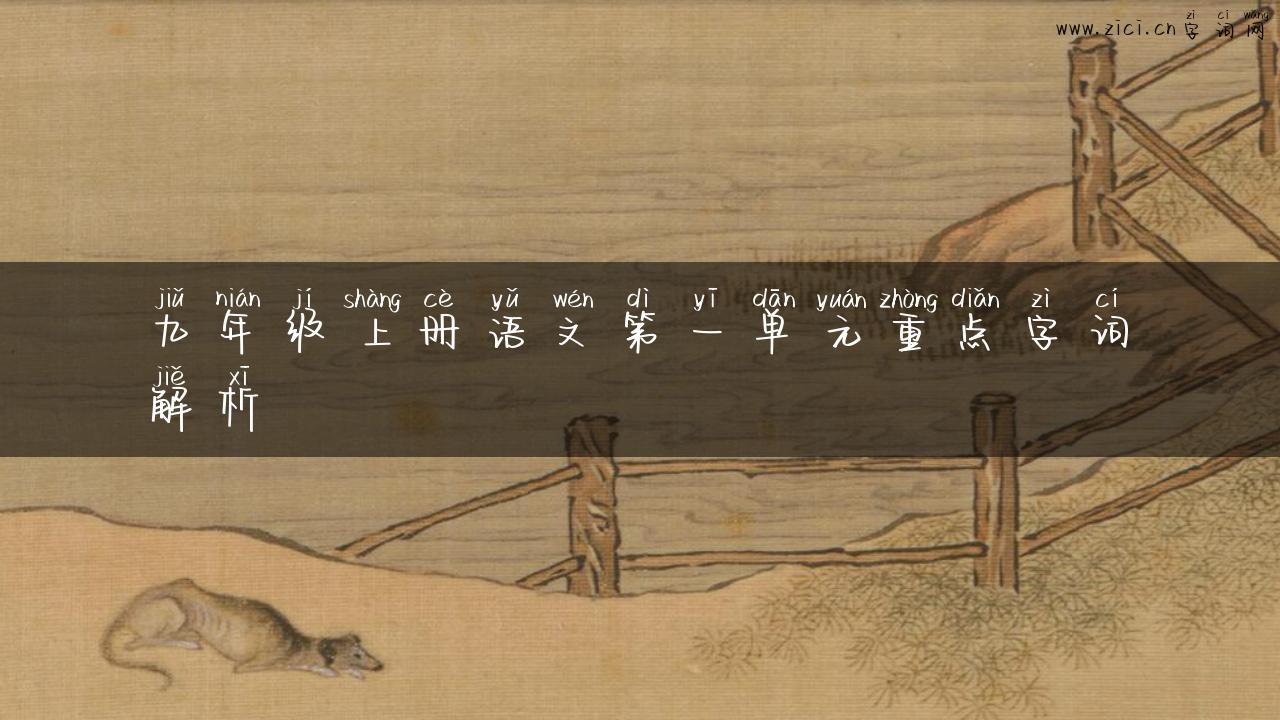 zì cí wǎng
www.zici.cn字词网
jiǔ nián jí shàng cè yǔ wén dì yī dān yuán zhòng diǎn zì cí
九年级上册语文第一单元重点字词
jiě xī
解析